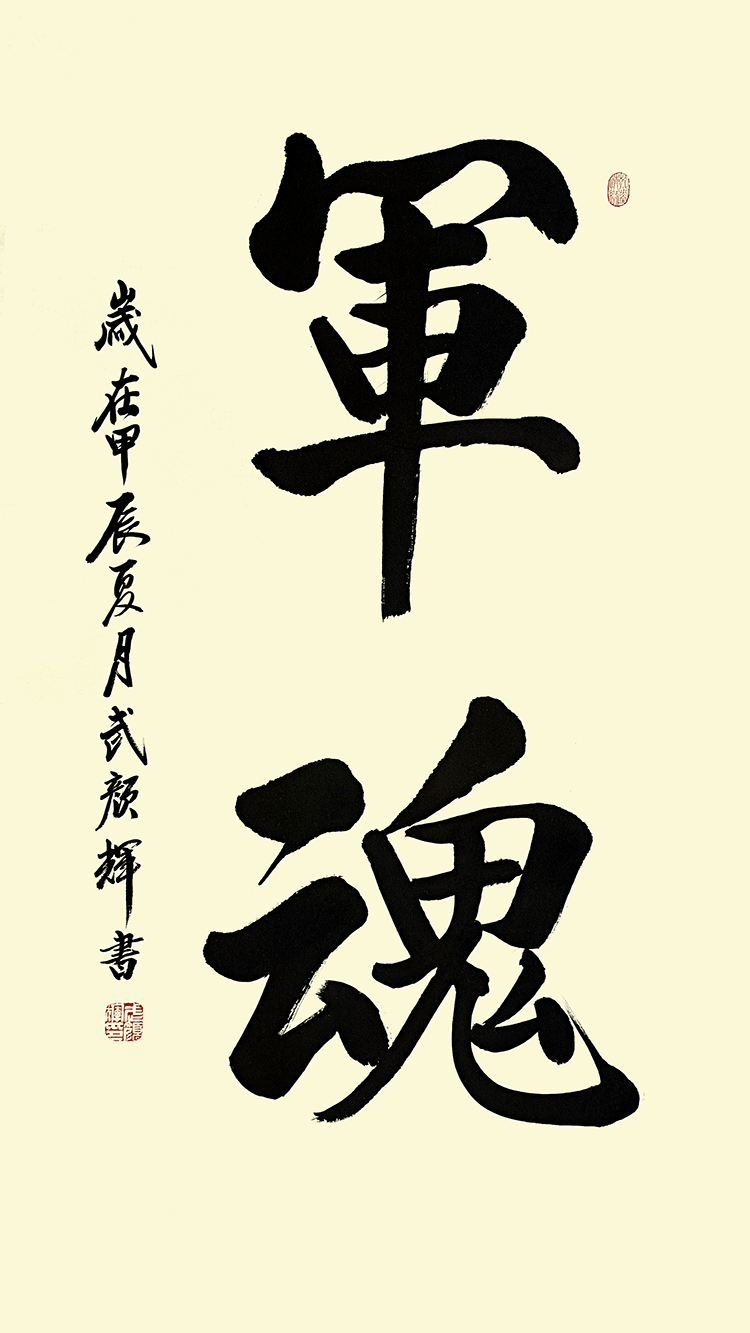 軍魂
歲在甲辰夏月武顏輝書